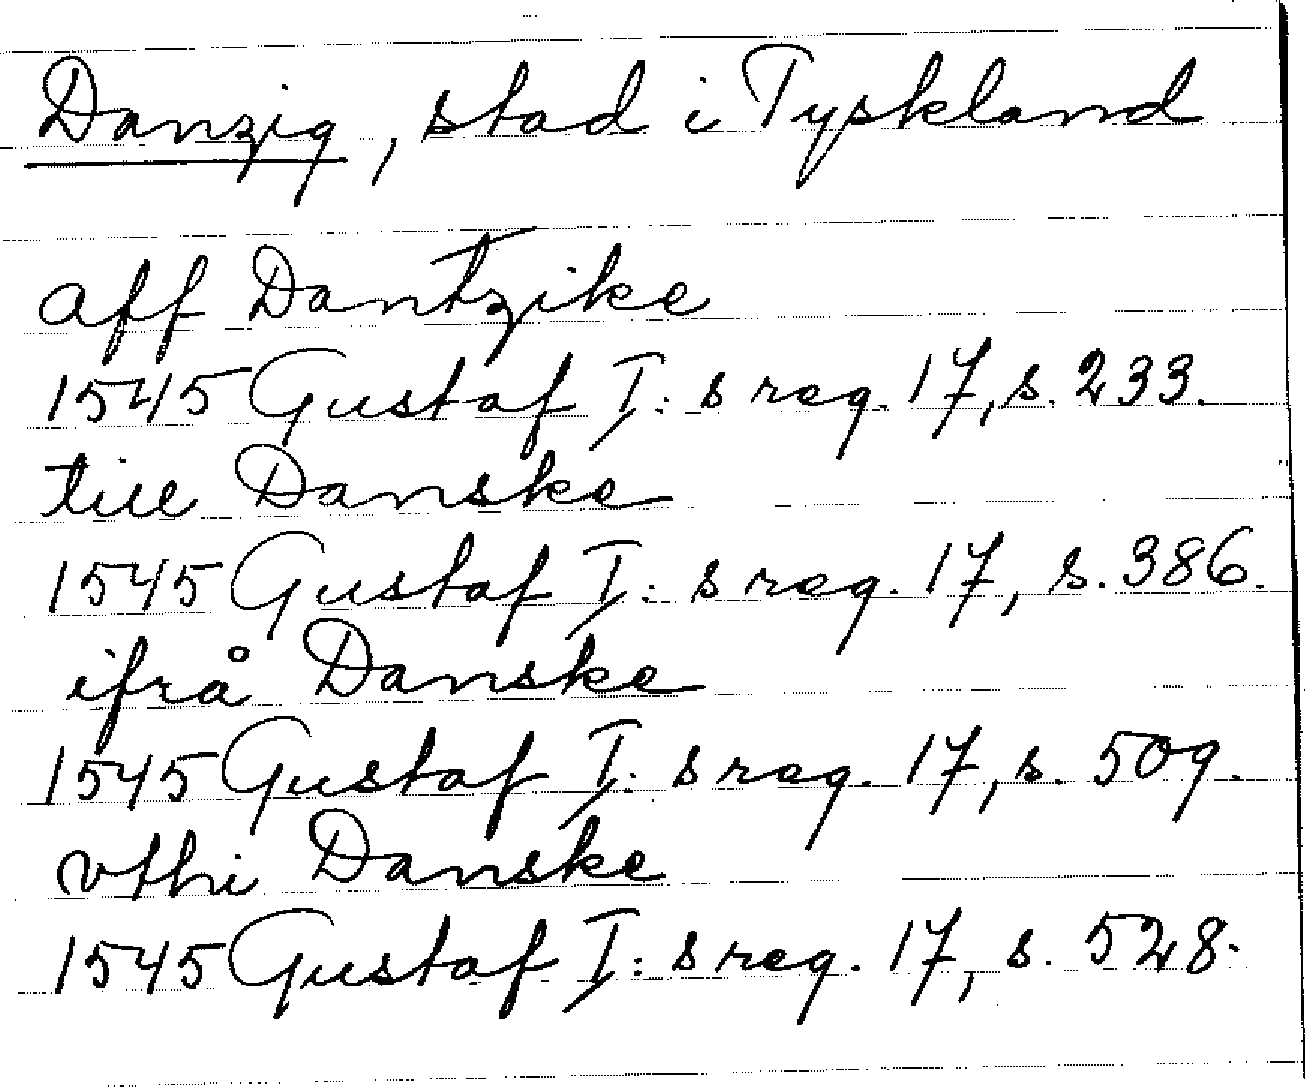 Danzig, stad i Tyskland
aff Dantzike
1545 Gustaf I:s reg. 17, s. 233.
till Danske
1545 Gustaf I:s reg. 17, s. 386.
ifrå Danske
1545 Gustaf I:s reg. 17, s. 509.
vthi Danske
1545 Gustaf I:s reg. 17, s. 528.